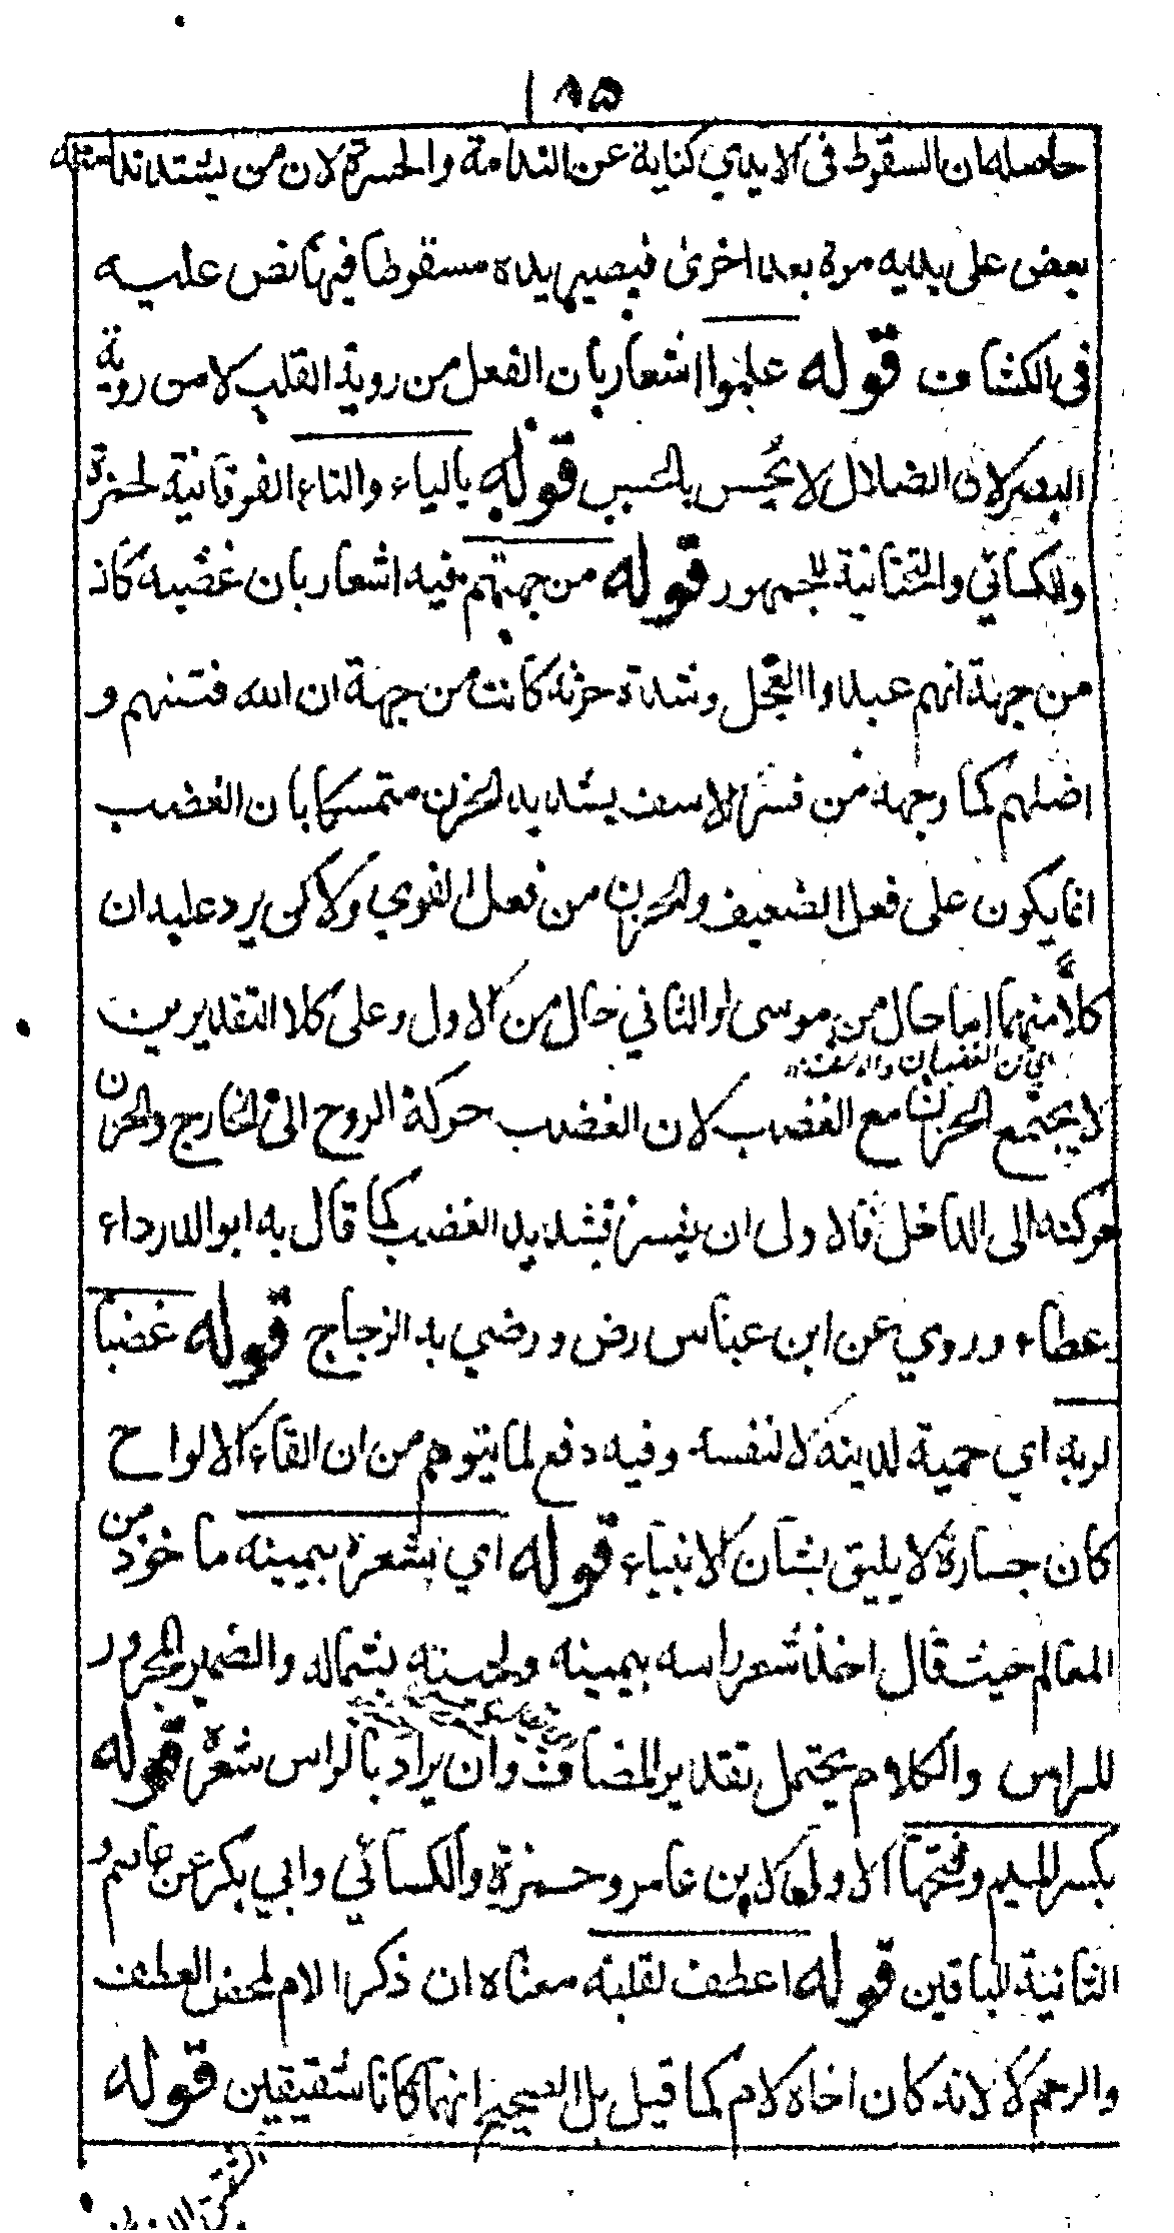 ١٨٥
حاصله ان السقوط في الايدي كناية عن الندامة والحسرة لان من يشتد ندامته
بعض على يديه مرة بعد اخرى فيصير يده مسقوطا فيها نص عليه
في الكشاف قوله علموا اشعار بان الفعل من روية القلب لا من روية
البصر لان الضلال لا يحس بالحس قوله بالياء والتاء الفوقانية لحمزة
والكسائي والتحتانية للجمهور قوله من جهتهم فيه اشعار بان غضبه كان
من جهة انهم عبدوا العجل وشدة حزنه كانت من جهة ان الله فتنهم و
اضلهم كما وجهه من فسر الاسف بشديد الحزن متمسكا بان الغضب
انما يكون على فعل الضعيف والحزن من فعل القوي ولاكن يرد عليه ان
كلا منهما اما حال من موسى او الثاني حال من الاول وعلى كلا التقديرين
اي من الغضبان والاسف
لا يجتمع الحزن مع الغضب لان الغضب حركة الروح الى الخارج والحزن
حركته الى الداخل فالاولى ان يفسر بشديد الغضب كما قال به ابو الدرداء
وعطاء وروي عن ابن عباس رض ورضي به الزجاج قوله غضبا
لربه اي حمية لدينه لا لنفسه وفيه دفع لما يتوهم من ان القاء الالواح
كان جسارة لا يليق بشان الانبياء قوله اي بشعره بيمينه ماخوذ من
المعالم حيث قال اخذ شعر راسه بيمينه ولحيته بشماله والضمير المجرور
للراس والكلام يحتمل تقدير المضاف وان يراد بالراس شعره قوله
بكسر الميم وفتحها الاولى لابن عامر وحمزة والكسائي وابي بكر عن عاصم و
الثانية للباقين قوله اعطف لقلبه معناه ان ذكر الام لمحض العطف
والرحم لا لانه كان اخاه لام كما قيل بل الصحيح انهما كانا شقيقين قوله